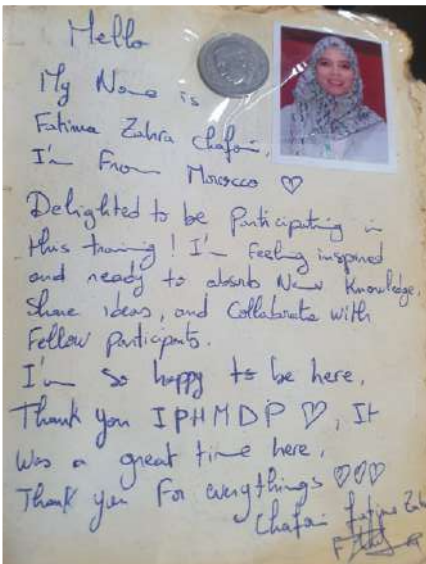 Hello
My Name is
Fatima Zahra Chafai,
I'm From Morocco ♡
Delighted to be Participating in
this training! I'm Feeling inspired
and ready to absorb New Knowledge,
Share ideas, and Collaborate with
Fellow participants.
I'm so happy to be here,
Thank you IPHMDP ♡, It
was a great time here,
Thank you For everythings ♡♡♡
Chafai Fatima Zah